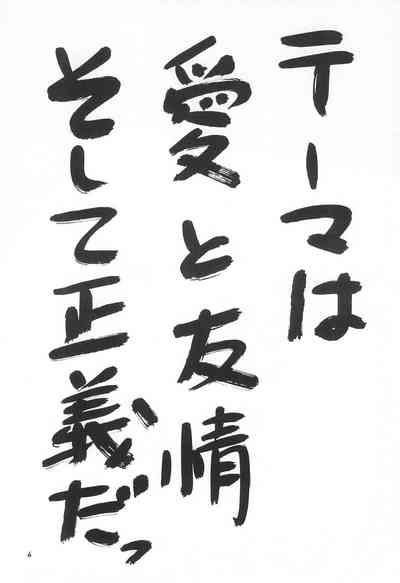 テーマは
愛と友情
そして正義だっ
4